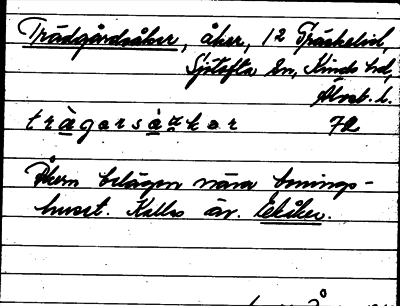 Trädgårdsåker, åker, 12 Träskelid,
Sjötofta sn, Kinds hd,
Älvsb. l.
trägarsåkar 7a
Åkern belägen nära bonings-
huset. Kallas äv. Ekåker.